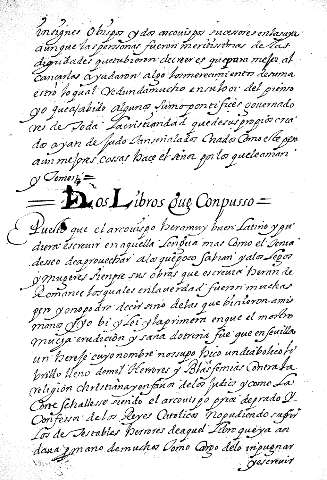 insignes Obispos y dos arcobispos sucesores en la suya
aunque las personas fueron meritisimas de las
dignidades que tubieron de creer es que para mejor al
cancarlas ayudaron algo los merecimientos de su ma
estro lo qual redunda mucho en su loor del
yo que a sabido algunos sumos pontifices governado
res de toda la cristiandad que de sus propios cria
do ayan dejado tan señalados criados como este pero
aun mejores cossas hace el señor por los que le aman
y temen
De Los Libros que Conpusso
Puesto que el arcobispo hera muy buen latino y pu
diera escreuir en aquella lengua mas como el tenia
deseo de aprovechar a los que poco sabian y a los legos
y mugeres siempre sus obras que escreuia heran de
Romance los quales en la verdad fueron muchas
pero yo no podre decir sino de las que binieron a mis
manos e yo bi y lei y la primera en que el mostro
mucha erudicion y sana dotrina fue que en sevilla
un hereje cuyo nombre no supo hico un diabolico li
brillo lleno de mil herrores y blasfemias contra la
religion christiana y en favor de los judios y como la
corte se hallasse siendo el arcobispo prior de prado y
confessor de los Reyes Catolicos no pudiendo sufrir
los detestables herrores de aquel libro que ya an
dava por mano de muchos tomo cargo de lo inpugnar
y escreuir